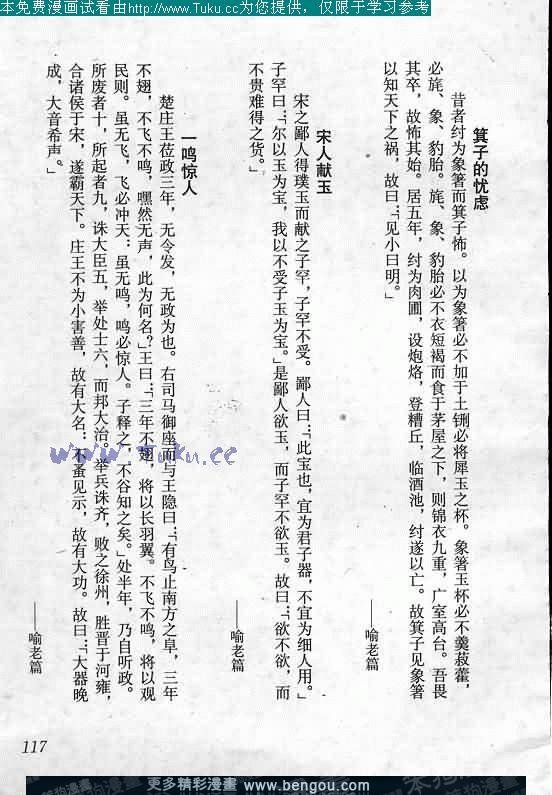 本免费漫画试看由http://www.Tuku.cc为您提供，仅限于学习参考
箕子的忧虑
昔者纣为象箸而箕子怖。以为象箸必不加于土铏必将犀玉之杯。象箸玉杯必不羹菽藿，
必旄、象、豹胎。旄、象、豹胎必不衣短褐而食于茅屋之下，则锦衣九重，广室高台。吾畏
其卒，故怖其始。居五年，纣为肉圃，设炮烙，登糟丘，临酒池，纣遂以亡。故箕子见象箸
以知天下之祸，故曰：「见小曰明。」
——喻老篇
宋人献玉
宋之鄙人得璞玉而献之子罕，子罕不受。鄙人曰：「此宝也，宜为君子器，不宜为细人用。」
子罕曰：「尔以玉为宝，我以不受子玉为宝。」是鄙人欲玉，而子罕不欲玉。故曰：「欲不欲，而
不贵难得之货。」
——喻老篇
一鸣惊人
楚庄王莅政三年，无令发，无政为也。右司马御座而与王隐曰：「有鸟止南方之阜，三年
不翅，不飞不鸣，嘿然无声，此为何名？」王曰：「三年不翅，将以长羽翼。不飞不鸣，将以观
民则。虽无飞，飞必冲天；虽无鸣，鸣必惊人。子释之，不谷知之矣。」处半年，乃自听政。
所废者十，所起者九，诛大臣五，举处士六，而邦大治。举兵诛齐，败之徐州，胜晋于河雍，
合诸侯于宋，遂霸天下。庄王不为小害善，故有大名；不蚤见示，故有大功。故曰：「大器晚
成，大音希声。」
——喻老篇
www.Tuku.cc
117
更多精彩漫画 www.bengou.com
笨狗漫画